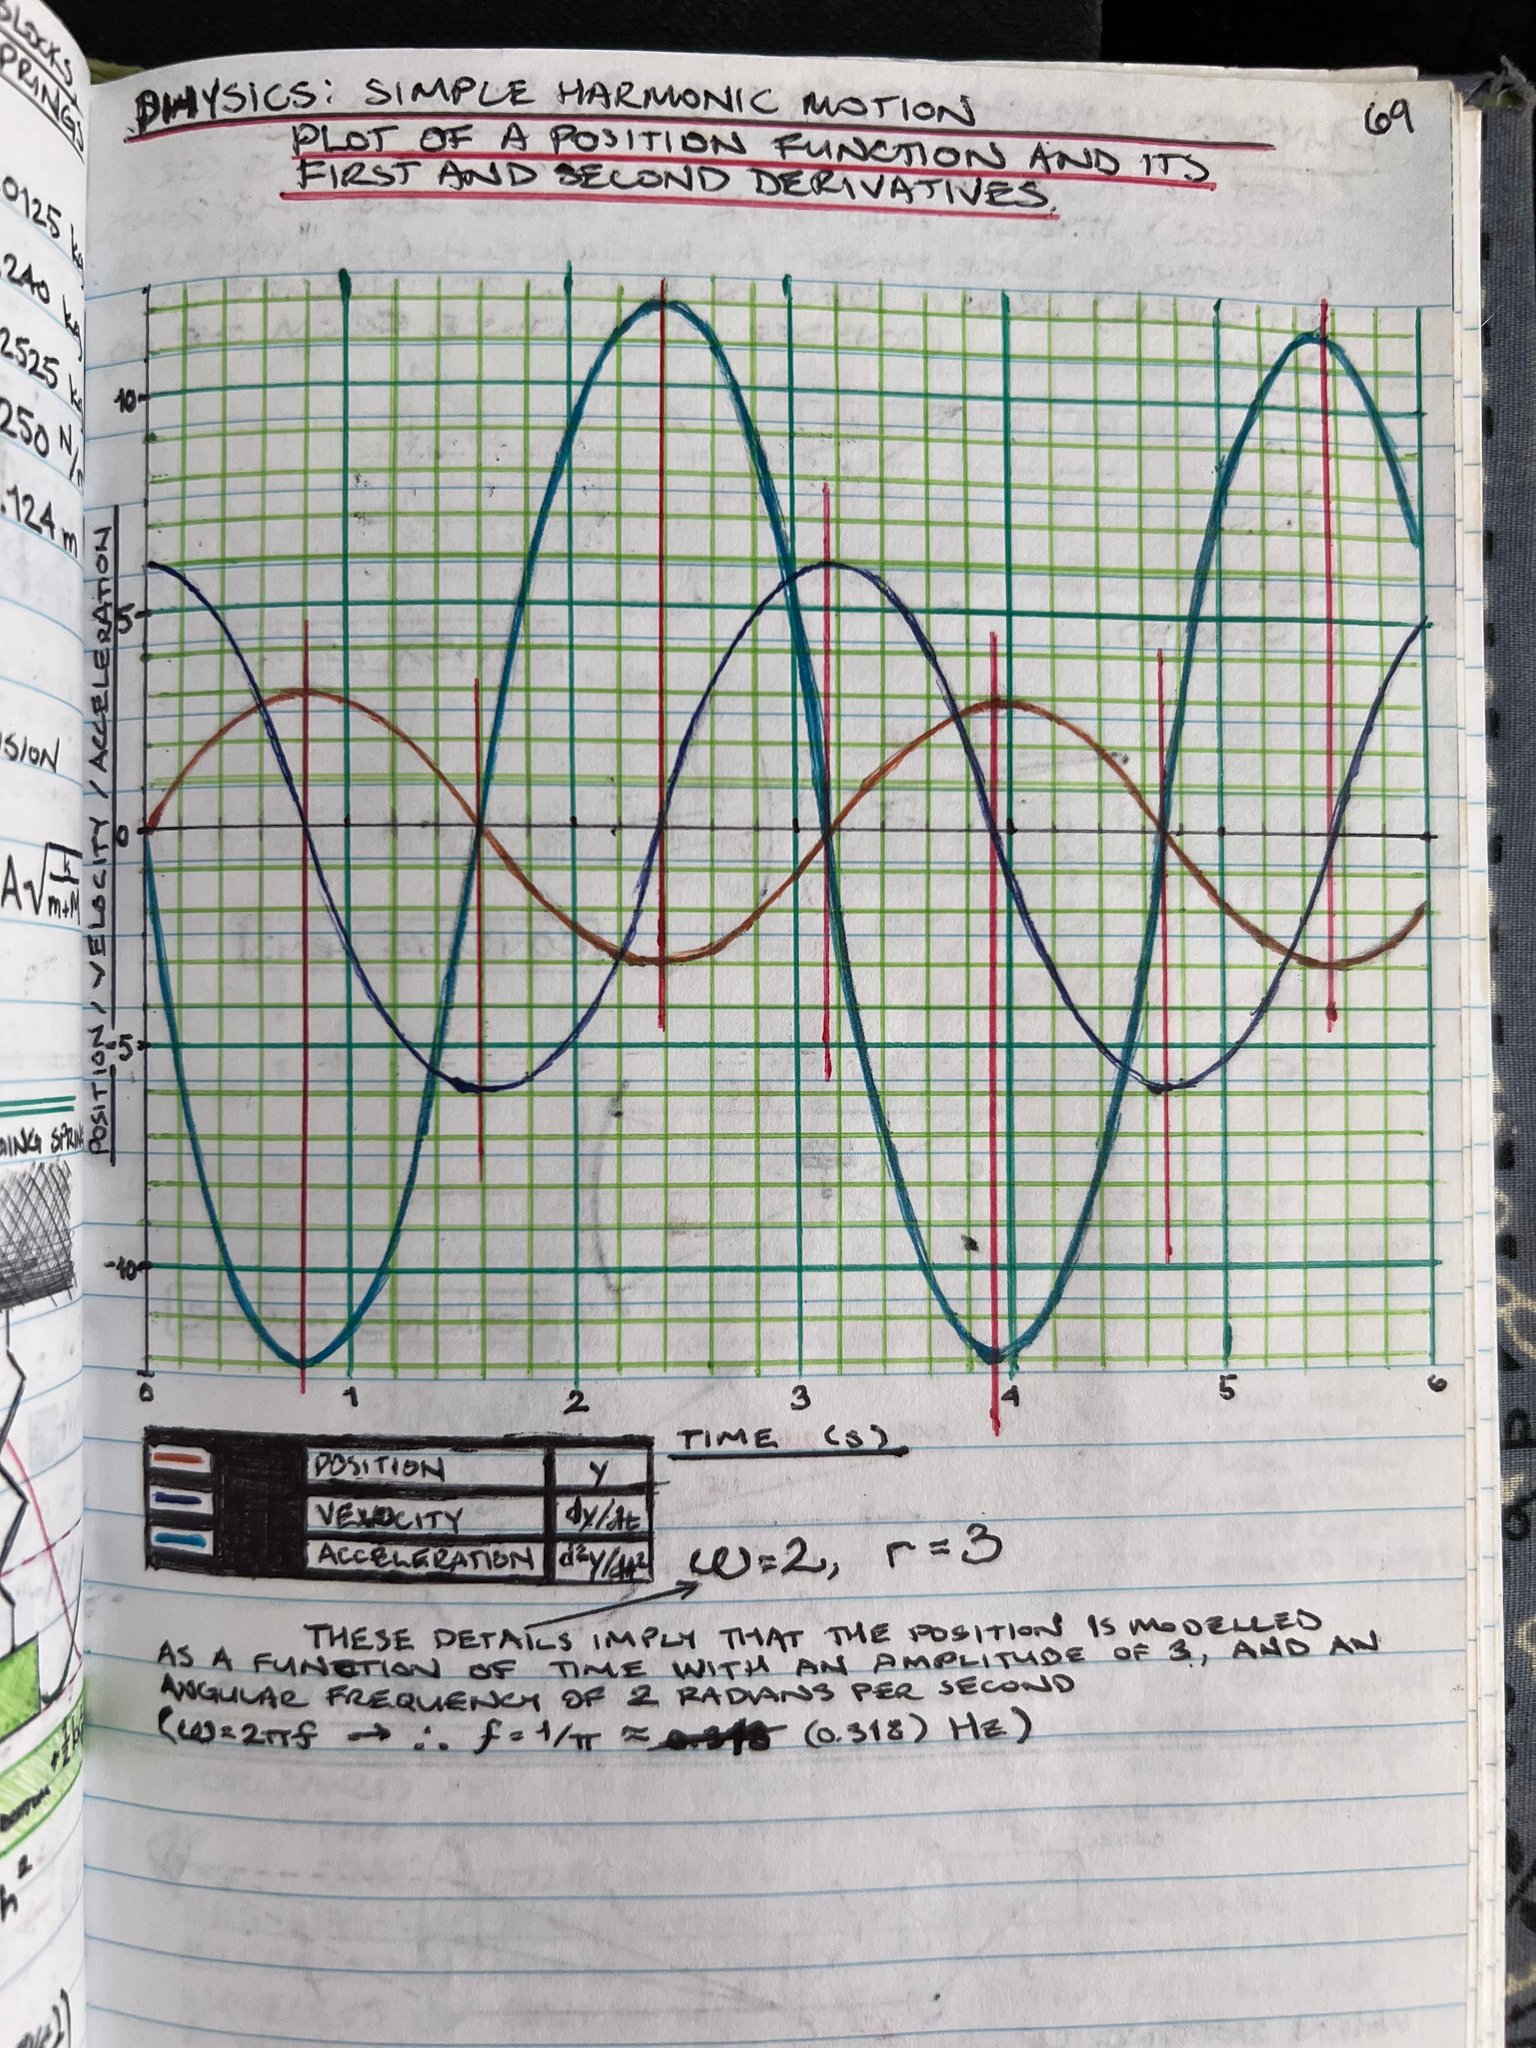 BLOCKS,
PRINGS
0125 kg
.240 kg
2525 kg
250 N/m
.124 m
ISION
A√k/m+M
DING SPRIN
PHYSICS: SIMPLE HARMONIC MOTION
69
PLOT OF A POSITION FUNCTION AND ITS
FIRST AND SECOND DERIVATIVES.
POSITION / VELOCITY / ACCELERATION
10
5
0
-5
-10
0 1 2 3 4 5 6
TIME (s)
POSITION y
VELOCITY dy/dt
ACCELERATION d²y/dt²
ω=2, r=3
THESE DETAILS IMPLY THAT THE POSITION IS MODELLED
AS A FUNCTION OF TIME WITH AN AMPLITUDE OF 3, AND AN
ANGULAR FREQUENCY OF 2 RADIANS PER SECOND
(ω=2πf → ∴ f=1/π ≈ (0.318) Hz)